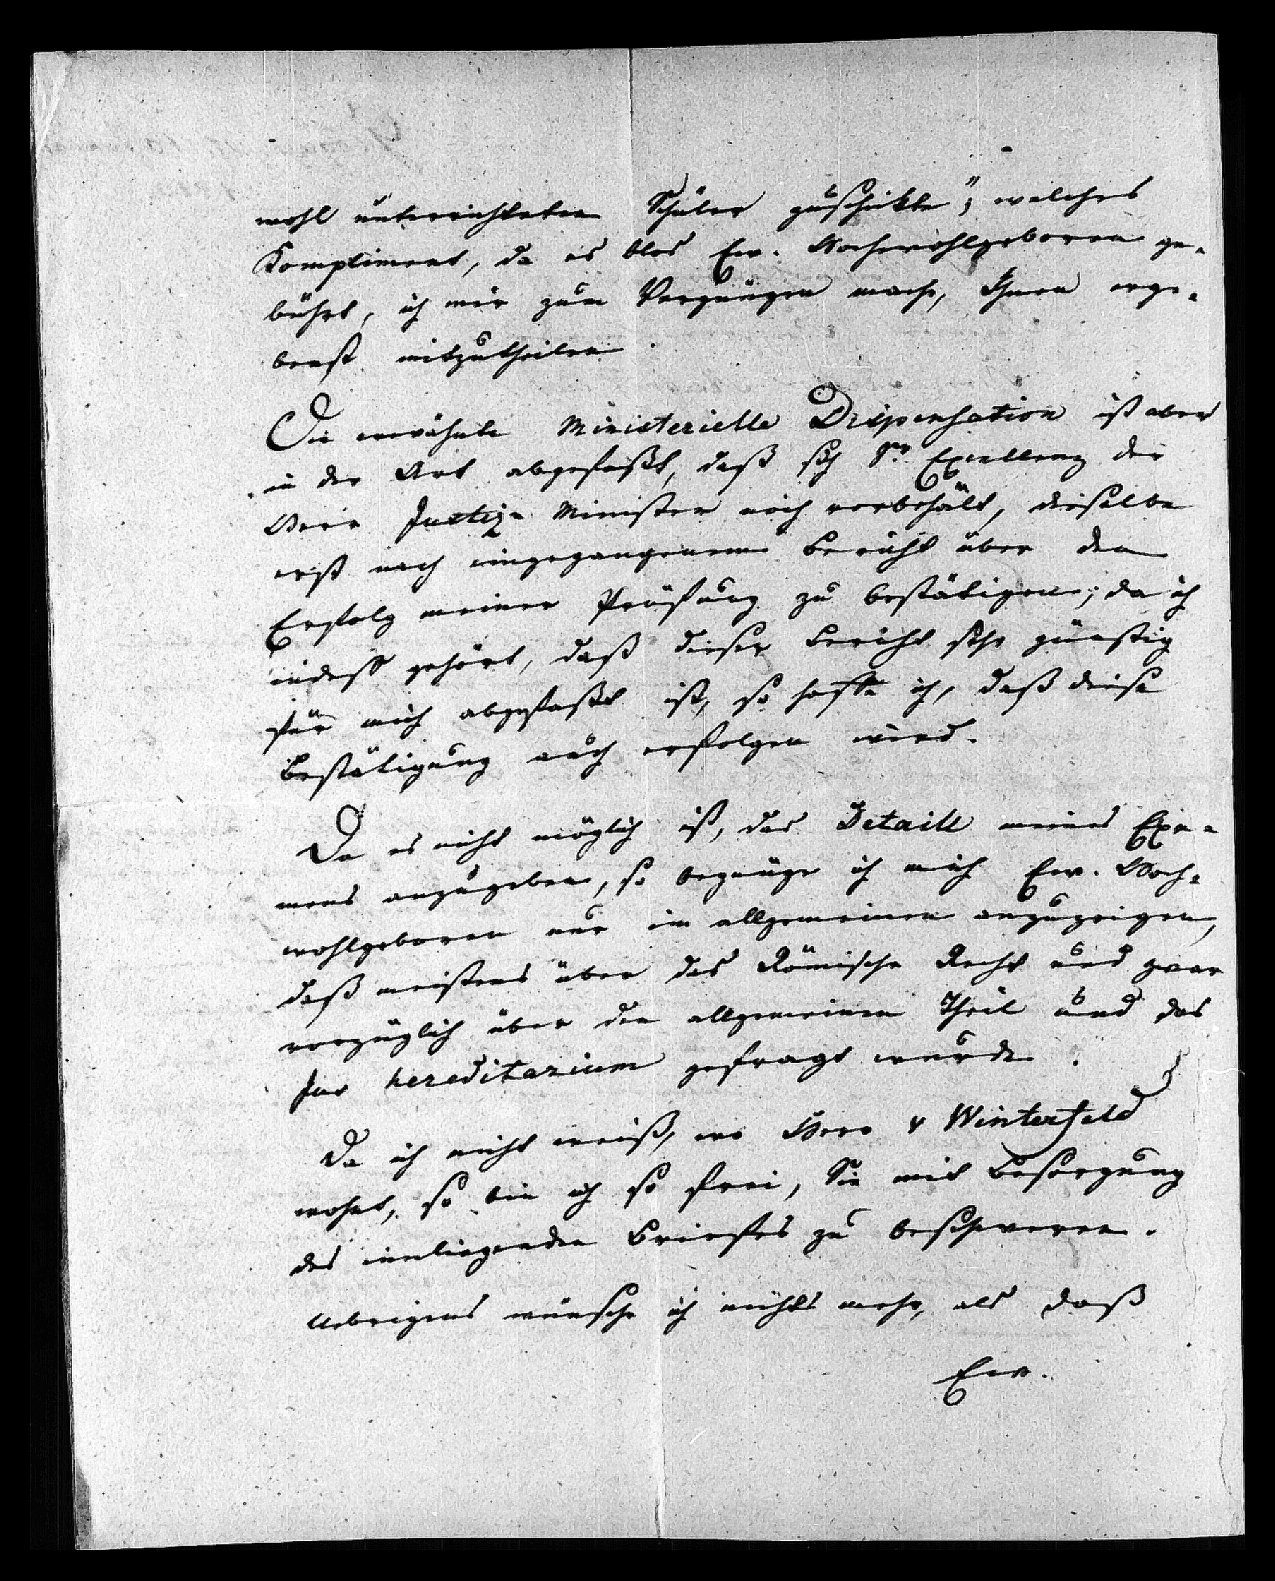 wohl unterrichteten Schüler zuschickte", welches
Kompliment, da es blos Ew. Hochwohlgeboren ge-
bührt, ich mir zum Vergnügen mache, Ihnen erge-
benst mitzutheilen.
Die erwähnte Ministerielle Dispensation ist aber
in der Art abgefaßt, daß sich Sr. Excellenz der
Herr Justiz-Minister noch vorbehält, dieselbe
erst nach eingegangenem Bericht über den
Erfolg meiner Prüfung zu bestätigen; da ich
indeß gehört, daß dieser Bericht sehr günstig
für mich abgefaßt ist, so hoffe ich, daß diese
Bestätigung auch erfolgen wird.
Da es nicht möglich ist, das Detaill meines Exa-
mens anzugeben, so begnüge ich mich Ew. Hoch-
wohlgeboren nur im allgemeinen anzuzeigen,
daß meistens über das Römische Recht und zwar
vorzüglich über den allgemeinen Theil und das
Jus hereditarium gefragt wurde.
Da ich nicht weiß, wo Herr v Winterfeld
wohnt, so bin ich so frei, Sie mit Besorgung
des innliegenden Briefes zu beschweren.
Uebrigens wünsche ich nichts mehr, als daß
Ew.